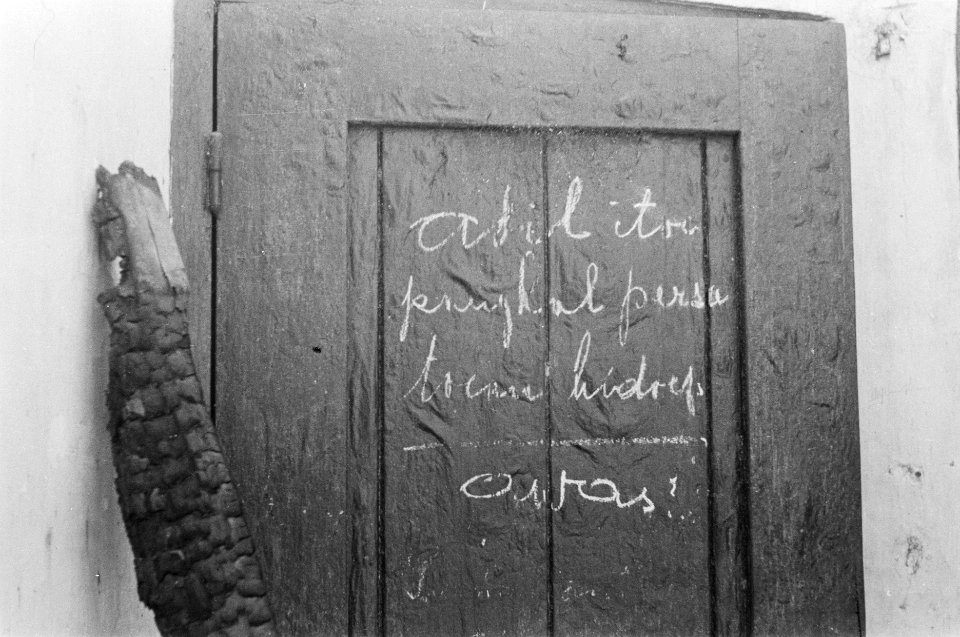 adil itoe
pangkal persa
toean hidoep
awas!